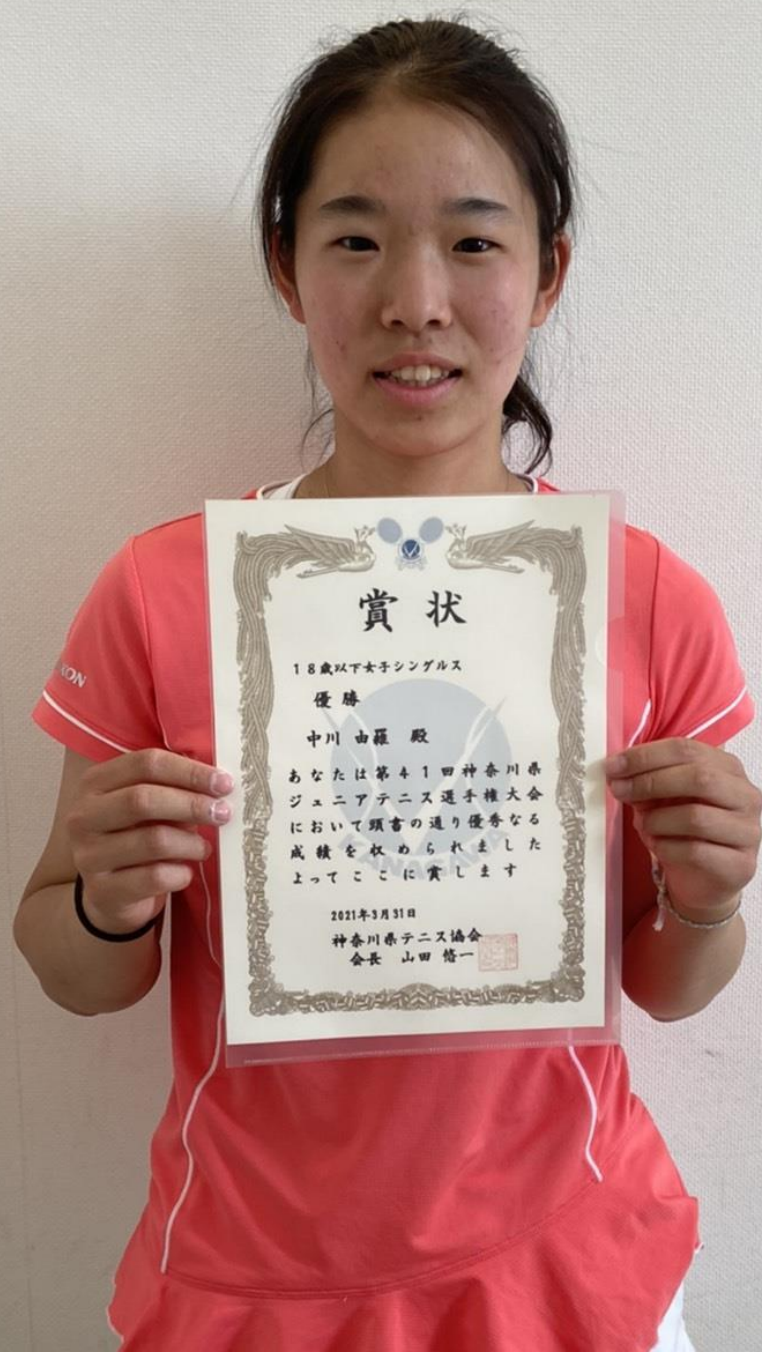 賞状
18歳以下女子シングルス
優勝
中川 由羅 殿
あなたは第41回神奈川県
ジュニアテニス選手権大会
において頭書の通り優秀なる
成績を収められました
よってここに賞します
2021年3月31日
神奈川県テニス協会
会長 山田 悠一
KANAGAWA
XON